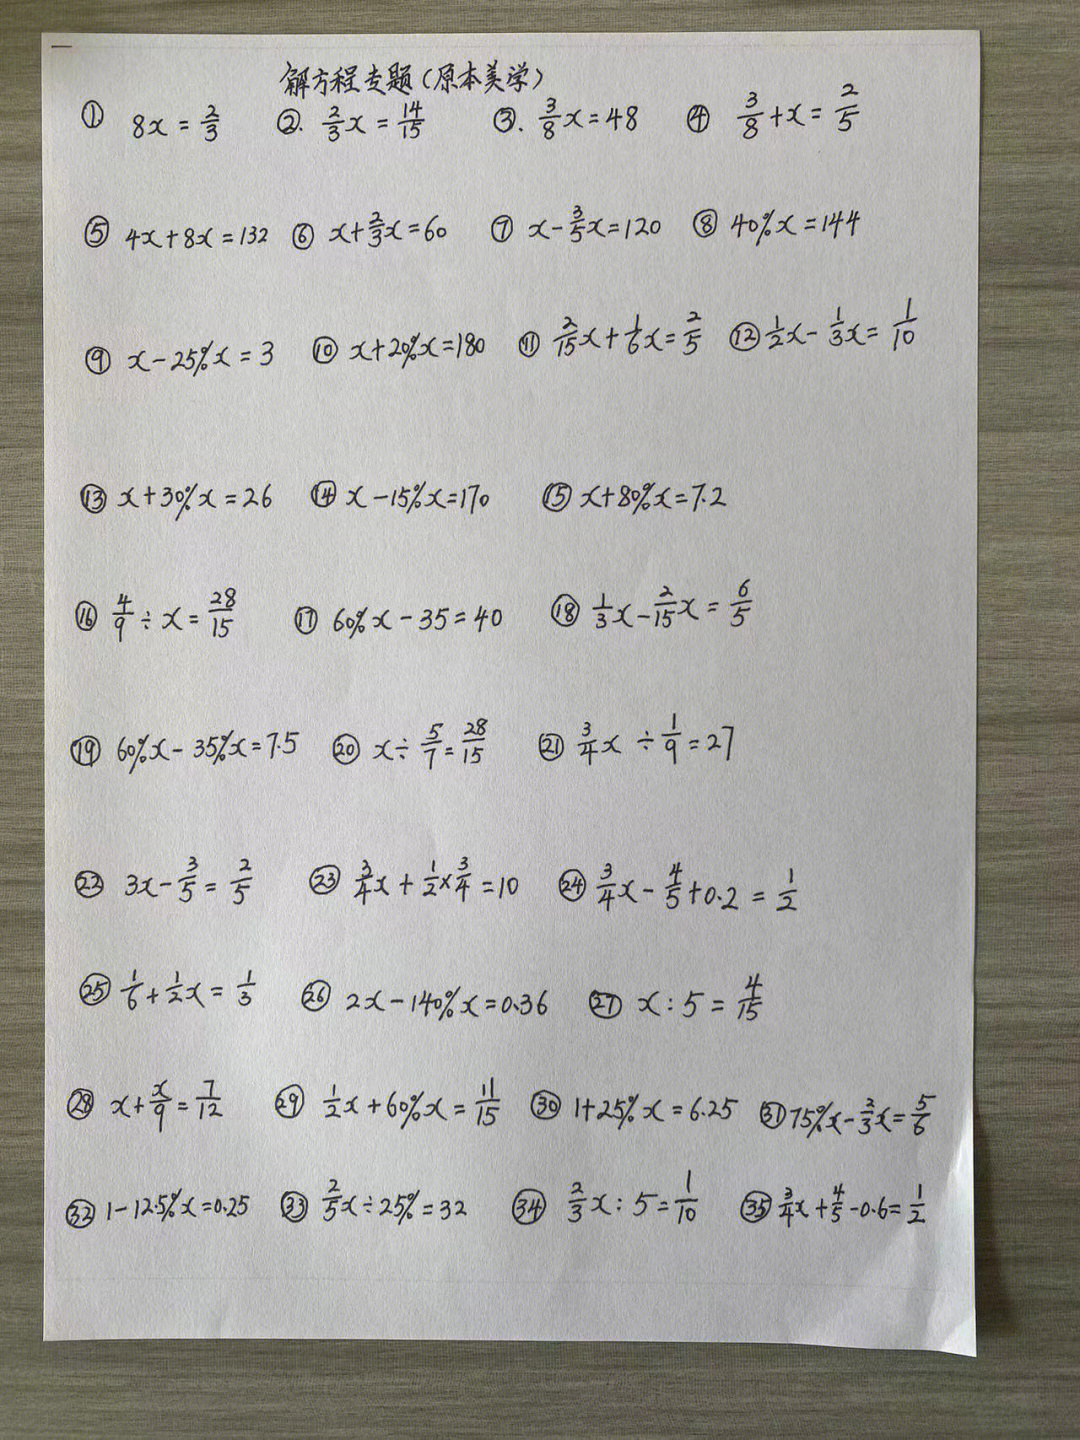 解方程专题(原本美学)
① 8x = 2/3 ②. 2/3x = 14/15 ③. 3/8x = 48 ④ 3/8 + x = 2/5
⑤ 4x + 8x = 132 ⑥ x + 2/3x = 60 ⑦ x - 3/5x = 120 ⑧ 40%x = 144
⑨ x - 25%x = 3 ⑩ x + 20%x = 180 ⑪ 2/15x + 1/6x = 2/5 ⑫ 1/2x - 1/3x = 1/10
⑬ x + 30%x = 26 ⑭ x - 15%x = 170 ⑮ x + 80%x = 7.2
⑯ 4/9 ÷ x = 28/15 ⑰ 60%x - 35 = 40 ⑱ 1/3x - 2/15x = 6/5
⑲ 60%x - 35%x = 7.5 ⑳ x ÷ 5/7 = 28/15 ㉑ 3/4x ÷ 1/9 = 27
㉒ 3x - 3/5 = 2/5 ㉓ 3/4x + 1/2 × 3/4 = 10 ㉔ 3/4x - 4/5 + 0.2 = 1/2
㉕ 1/6 + 1/2x = 1/3 ㉖ 2x - 140%x = 0.36 ㉗ x : 5 = 4/15
㉘ x + x/9 = 7/12 ㉙ 1/2x + 60%x = 11/15 ㉚ 1 + 25%x = 6.25 ㉛ 75%x - 2/3x = 5/6
㉜ 1 - 12.5%x = 0.25 ㉝ 2/5x ÷ 25% = 32 ㉞ 2/3x : 5 = 1/10 ㉟ 3/4x + 4/5 - 0.6 = 1/2